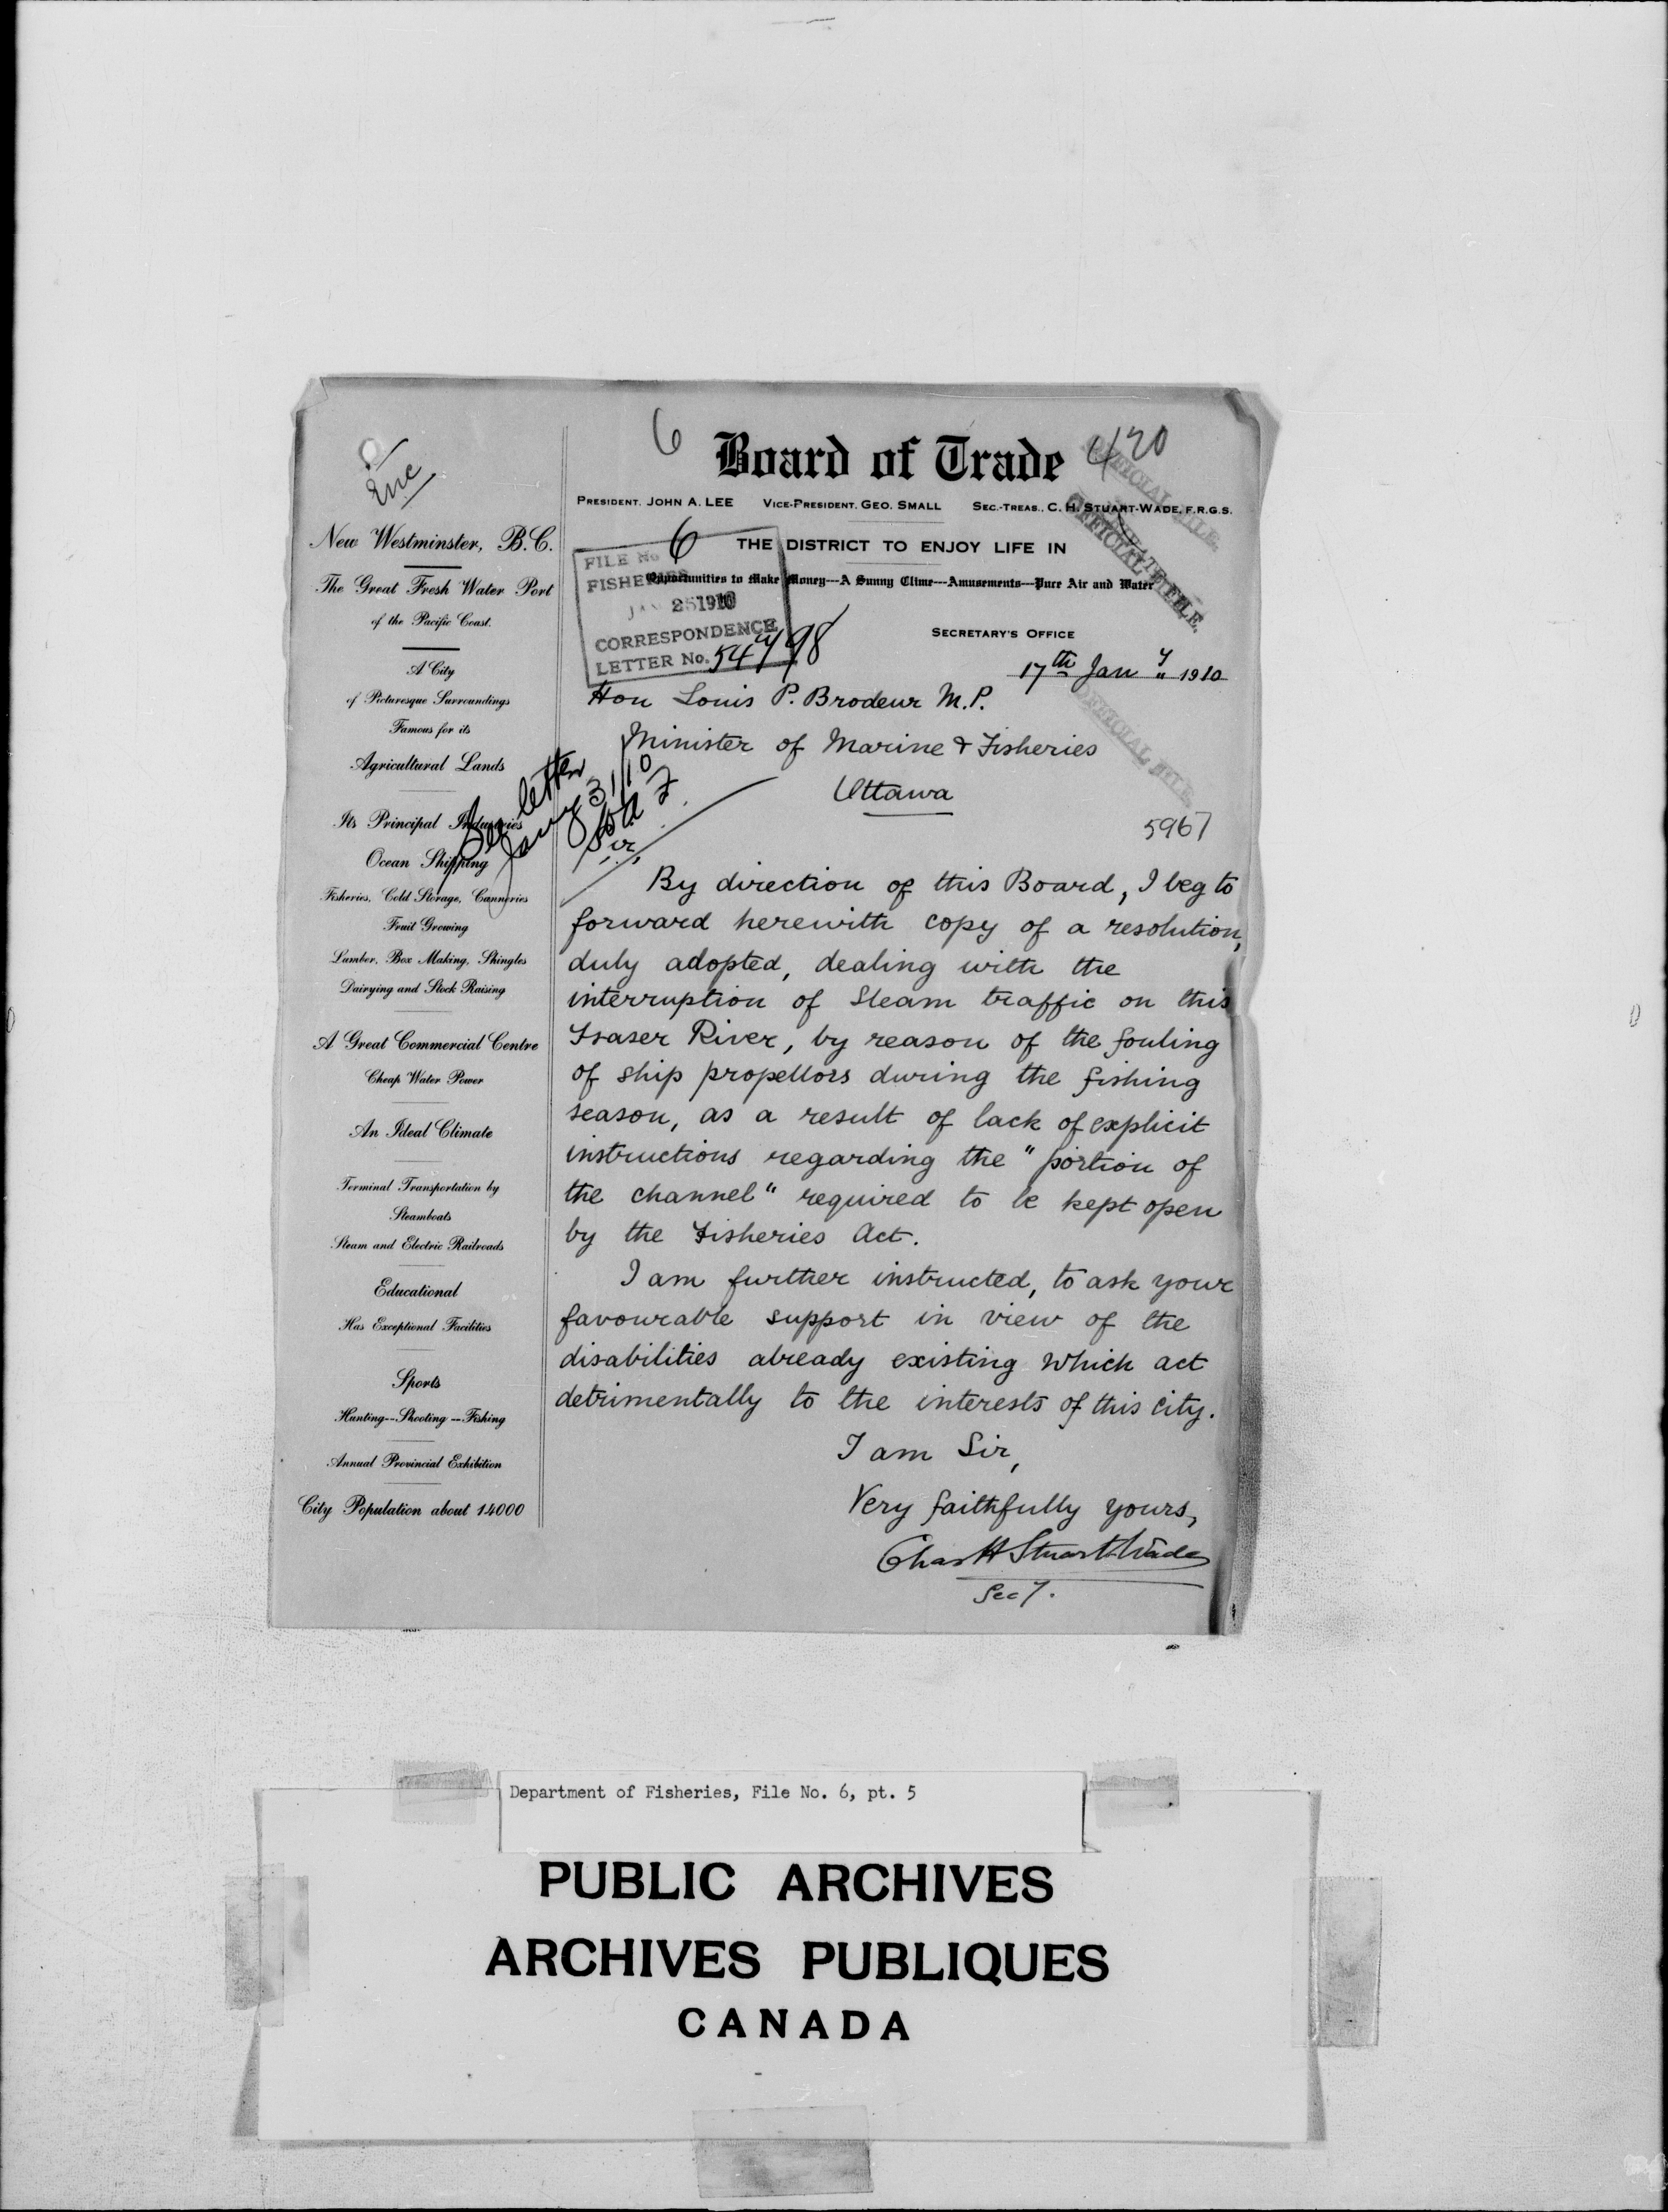 6
Board of Trade
420
PRESIDENT. JOHN A. LEE VICE-PRESIDENT. GEO. SMALL SEC.-TREAS., C. H. STUART-WADE, F.R.G.S.
THE DISTRICT TO ENJOY LIFE IN
Opportunities to Make Money---A Sunny Clime---Amusements---Pure Air and Water
OFFICIAL FILE.
OFFICIAL FILE.
OFFICIAL FILE.
FILE No 6
FISHERIES
JAN 25 1910
CORRESPONDENCE
LETTER No. 54798
SECRETARY'S OFFICE
17th Jan y 1910
Enc
New Westminster, B.C.
The Great Fresh Water Port
of the Pacific Coast.
A City
of Picturesque Surroundings
Famous for its
Agricultural Lands
Its Principal Industries
Ocean Shipping
Fisheries, Cold Storage, Canneries
Fruit Growing
Lumber, Box Making, Shingles
Dairying and Stock Raising
A Great Commercial Centre
Cheap Water Power
An Ideal Climate
Terminal Transportation by
Steamboats
Steam and Electric Railroads
Educational
Has Exceptional Facilities
Sports
Hunting--Shooting--Fishing
Annual Provincial Exhibition
City Population about 14000
Hon Louis P. Brodeur M.P.
Minister of Marine & Fisheries
Ottawa
5967
See letter
Jany 31/10
Sir,
By direction of this Board, I beg to
forward herewith copy of a resolution,
duly adopted, dealing with the
interruption of Steam traffic on this
Fraser River, by reason of the fouling
of ship propellors during the fishing
season, as a result of lack of explicit
instructions regarding the "portion of
the channel" required to be kept open
by the Fisheries Act.
I am further instructed, to ask your
favourable support in view of the
disabilities already existing which act
detrimentally to the interests of this city.
I am Sir,
Very faithfully yours,
Chas H Stuart-Wade
Secy.
Department of Fisheries, File No. 6, pt. 5
PUBLIC ARCHIVES
ARCHIVES PUBLIQUES
CANADA